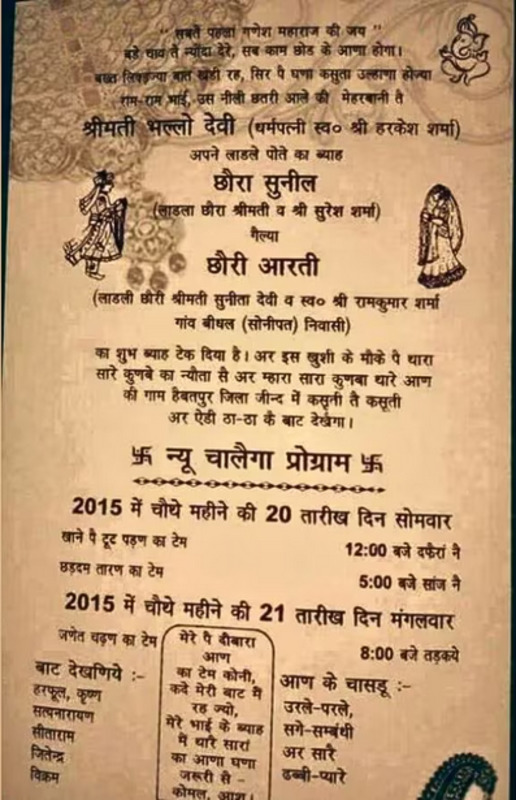 " सबतै पहलां गणेश महाराज की जय "
बडे चाव तै न्यौंदा देरे, सब काम छोड के आणा होगा।
बख्त लिकड़ज्या बात खड़ी रह, सिर पै घणा कसुता उल्हाणा होज्या
राम-राम भाई, उस नीली छतरी आले की मेहरबानी तै
श्रीमती भल्लो देवी (धर्मपत्नी स्व० श्री हरकेश शर्मा)
अपने लाडले पोते का ब्याह
छौरा सुनील
(लाडला छौरा श्रीमती व श्री सुरेश शर्मा)
गैल्या
छौरी आरती
(लाडली छौरी श्रीमती सुनीता देवी व स्व० श्री रामकुमार शर्मा
गांव बीधल (सोनीपत) निवासी)
का शुभ ब्याह टेक दिया है। अर इस खुशी के मौके पै थारा
सारे कुणबे का न्यौता सै अर म्हारा सारा कुणबा थारे आण
की गाम हैबतपुर जिला जीन्द में कसूती तै कसूती
अर ऐडी ठा-ठा कै बाट देखैगा।
卐 न्यू चालैगा प्रोग्राम 卐
2015 में चौथे महीने की 20 तारीख दिन सोमवार
खाने पै टूट पड़ण का टेम 12:00 बजे दफैरां नै
छड़दम तारण का टेम 5:00 बजे सांज नै
2015 में चौथे महीने की 21 तारीख दिन मंगलवार
जणेत चढ़ण का टेम 8:00 बजे तड़कये
बाट देखणिये :-
हरफूल, कृष्ण
सत्यनारायण
सीताराम
जितेन्द्र
विक्रम
मेरे पै दीबारा
आण
का टेम कोनी,
कदे मेरी बाट मैं
रह ज्यो,
मेरे भाई के ब्याह
में थारै सारां
का आणा घणा
जरूरी सै -
कोमल, आशु
आण के चासडू :-
उरले-परले,
सगे-सम्बंधी
अर सारै
ढब्बी-प्यारे